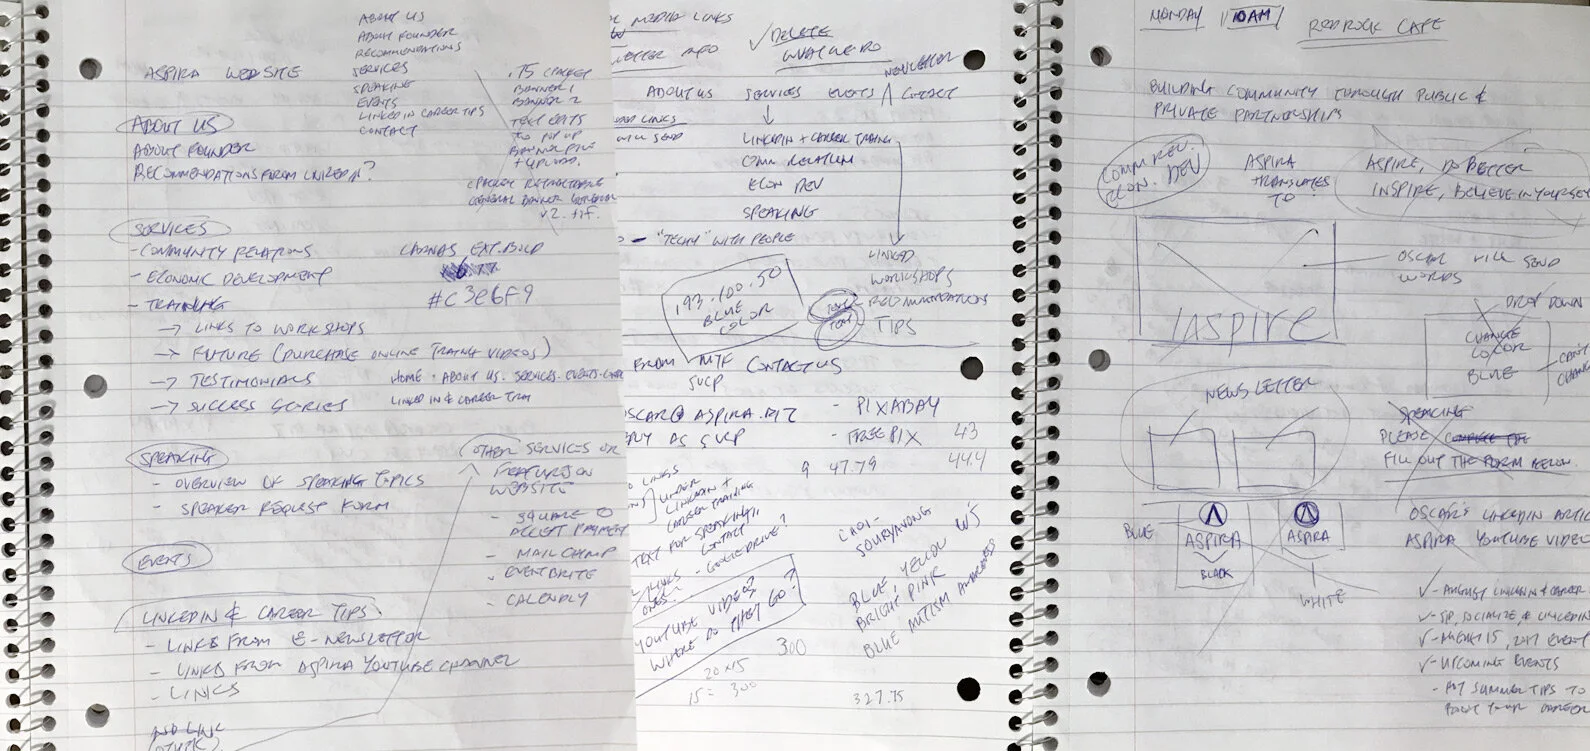 ABOUT US
ABOUT FOUNDER
RECOMMENDATIONS
SERVICES
SPEAKING
EVENTS
LINKEDIN CAREER TIPS
CONTACT
ASPIRA WEBSITE
BANNER 1
BANNER 2
TEXT EDITS
TO POP UP
ABOUT US
ABOUT FOUNDER
RECOMMENDATIONS FROM LINKEDIN?
V2. TIF.
SERVICES
- COMMUNITY RELATIONS
- ECONOMIC DEVELOPMENT
- TRAINING
EXT. BOLD
#C3E6F9
→ LINKS TO WORKSHOPS
→ FUTURE (PURCHASE ONLINE TRAING VIDEOS)
→ TESTIMONIALS
→ SUCCESS STORIES
HOME . ABOUT US . SERVICES . EVENTS .
LINKEDIN & CAREER
SPEAKING
- OVERVIEW OF SPEAKING TOPICS
- SPEAKER REQUEST FORM
OTHER SERVICES OR
FEATURES ON
WEBSITE
- SQUARE TO
ACCEPT PAYMENT
- MAILCHIMP
- EVENTBRITE
- CALENDLY
EVENTS
LINKEDIN & CAREER TIPS
- LINKS FROM E-NEWSLETTER
- LINKS FROM ASPIRA YOUTUBE CHANNEL
- LINKS
NO LINK
MEDIA LINKS
INFO
✓ DELETE
NEWSLETTER
ABOUT US SERVICES EVENTS CONTACT
LINKS
SEND
LINKEDIN + CAREER TRAING
COMM RELATION
ECON DEV
SPEAKING
- "TECHY" WITH PEOPLE
LINKED
WORKSHOPS
RECOMMENDATIONS
TIPS
TEXT
TEXT
193.100.50
BLUE
COLOR
FROM MTF CONTACT US
SVCP
OSCAR@ASPIRA.BIZ
AS SVCP
- PIXABAY
- FREEPIX 43
9 47.79 44.4
LINKS
UNDER
LINKEDIN +
CAREER TRAINING
TEXT FOR SPEAKING!!
CONTACT
- GOOGLE DRIVE?
LINKS
YOUTUBE VIDEOS?
WHERE DO THEY GO?
SOURYAVONG
BLUE, YELLOW
BRIGHT PINK
BLUE AUTISM AWARENESS
300
20 x 15
15 = 300
327.75
MONDAY 10AM
REDROCK CAFE
BUILDING COMMUNITY THROUGH PUBLIC &
PRIVATE PARTNERSHIPS
COMM REV.
ECON. DEV
ASPIRA
TRANSLATES
TO
ASPIRE, DO BETTER
INSPIRE, BELIEVE IN YOURSELF
OSCAR WILL SEND
WORDS
ASPIRE
DROP DOWN
CHANGE
COLOR
BLUE
CAN'T
CHANGE
NEWSLETTER
SPEAKING
PLEASE COMPLETE THE
FILL OUT THE FORM BELOW.
BLUE
ASPIRA
BLACK
ASPIRA
WHITE
OSCAR'S LINKEDIN ARTIC
ASPIRA YOUTUBE VIDEO
✓ - AUGUST LINKEDIN & CAREER
✓ - SIP, SOCIALIZE, & LINKEDIN
✓ - AUGUST 15, 2017 EVENT
✓ - UPCOMING EVENTS
- SUMMER TIPS TO
YOUR CAREER